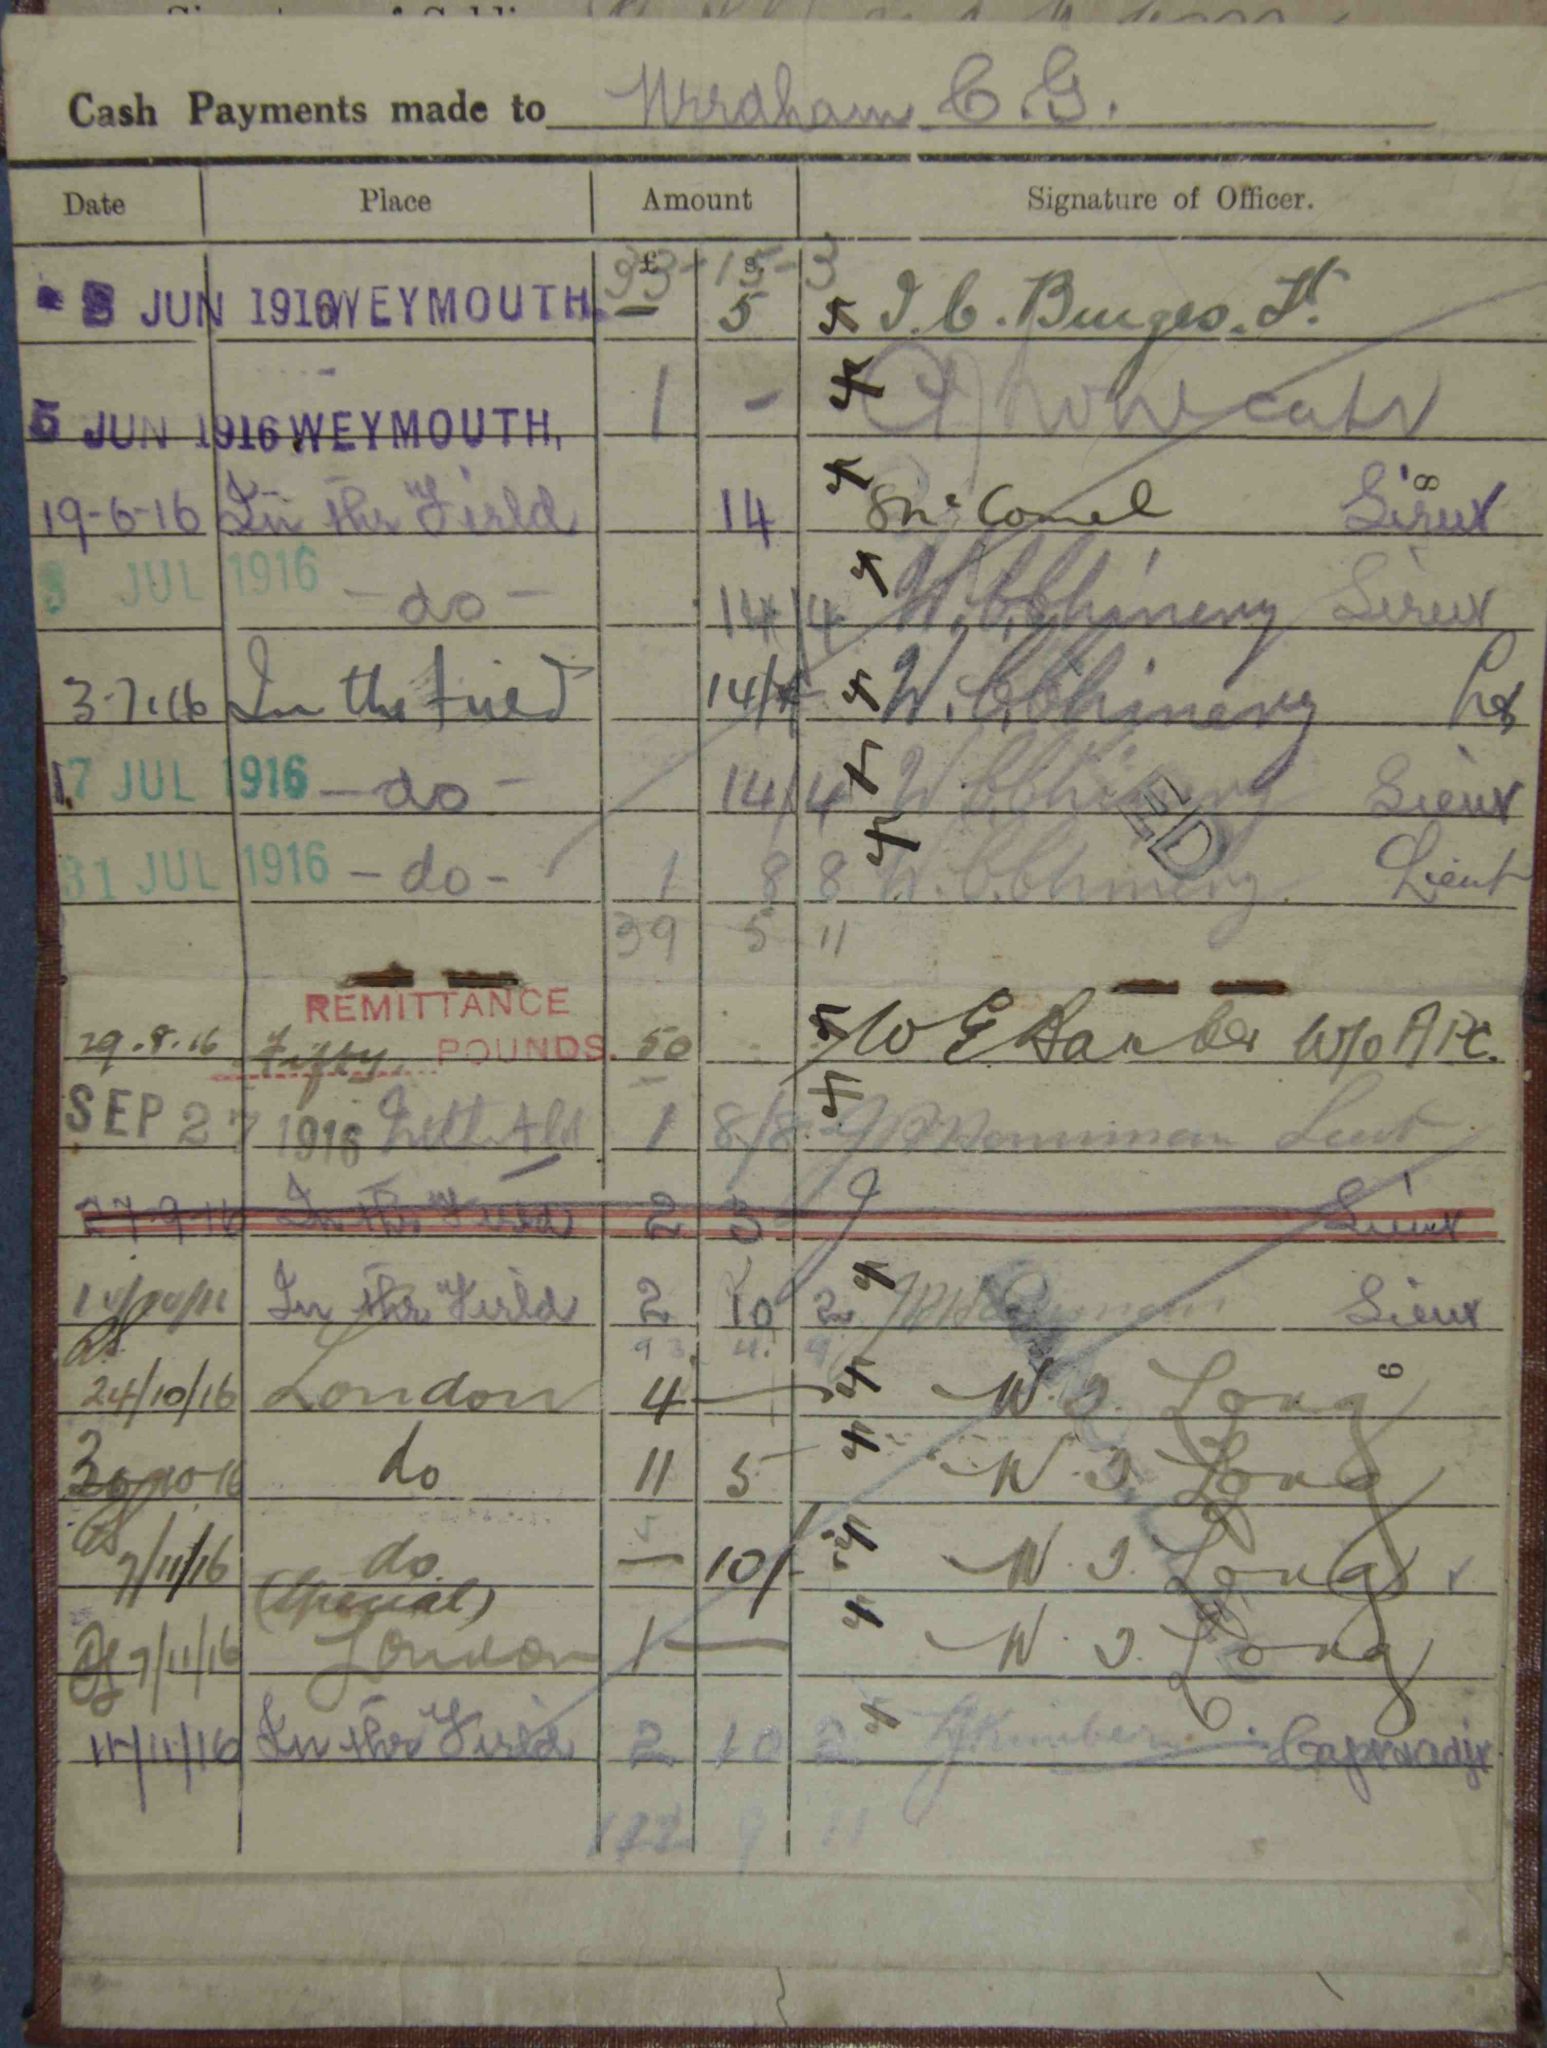 Cash Payments made to Nrrdham C. G.
Date Place Amount Signature of Officer.
£ s.
33-15-3
JUN 1916 WEYMOUTH. — 5 J. C. Burges. Lt.
5 JUN 1916 WEYMOUTH, 1 -
19-6-16 In the Field 14 Lieut
8
JUL 1916 - do - 14/4 W. C. Chinery Lieut
3.7.16 In the Field 14/4 W. C. Chinery Lt
17 JUL 1916 - do - 14/4 W. C. Chinery Lieut
31 JUL 1916 - do - 1 8 8 W. C. Chinery Lieut
39 5 11
REMITTANCE
29.8.16 Fifty POUNDS. 50 - W G Barber W/O APC.
SEP 27 1916 1 8/8 Lieut
27-9-16 In the Field 2 3 Lieut
In the Field 2 10 2 Lieut
93 4 9
24/10/16 London 4 — W. J. Long
9
30-10-16 do 11 5 W. J. Long
7/11/16 do — 10/- W. J. Long
(Special)
7/11/16 London 1 — W. J. Long
11/11/16 In the Field 2 10 2 Capt & adjt
112 9 11